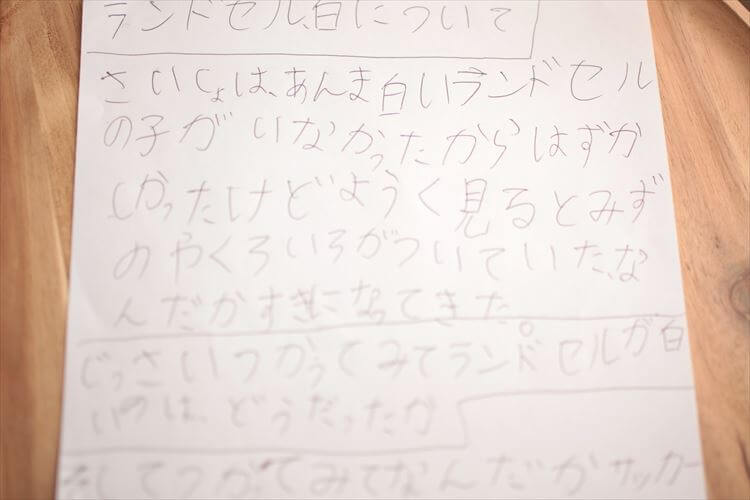 ランドセル、白について
さいしょは、あんま白いランドセル
の子がいなかったからはずか
しかったけどようく見るとみず
のやくろいろがついていた、な
んだかすきになってきた。
じっさいつかってみてランドセルが白
いのは、どうだったか
してつかてみてなんだかサッカー